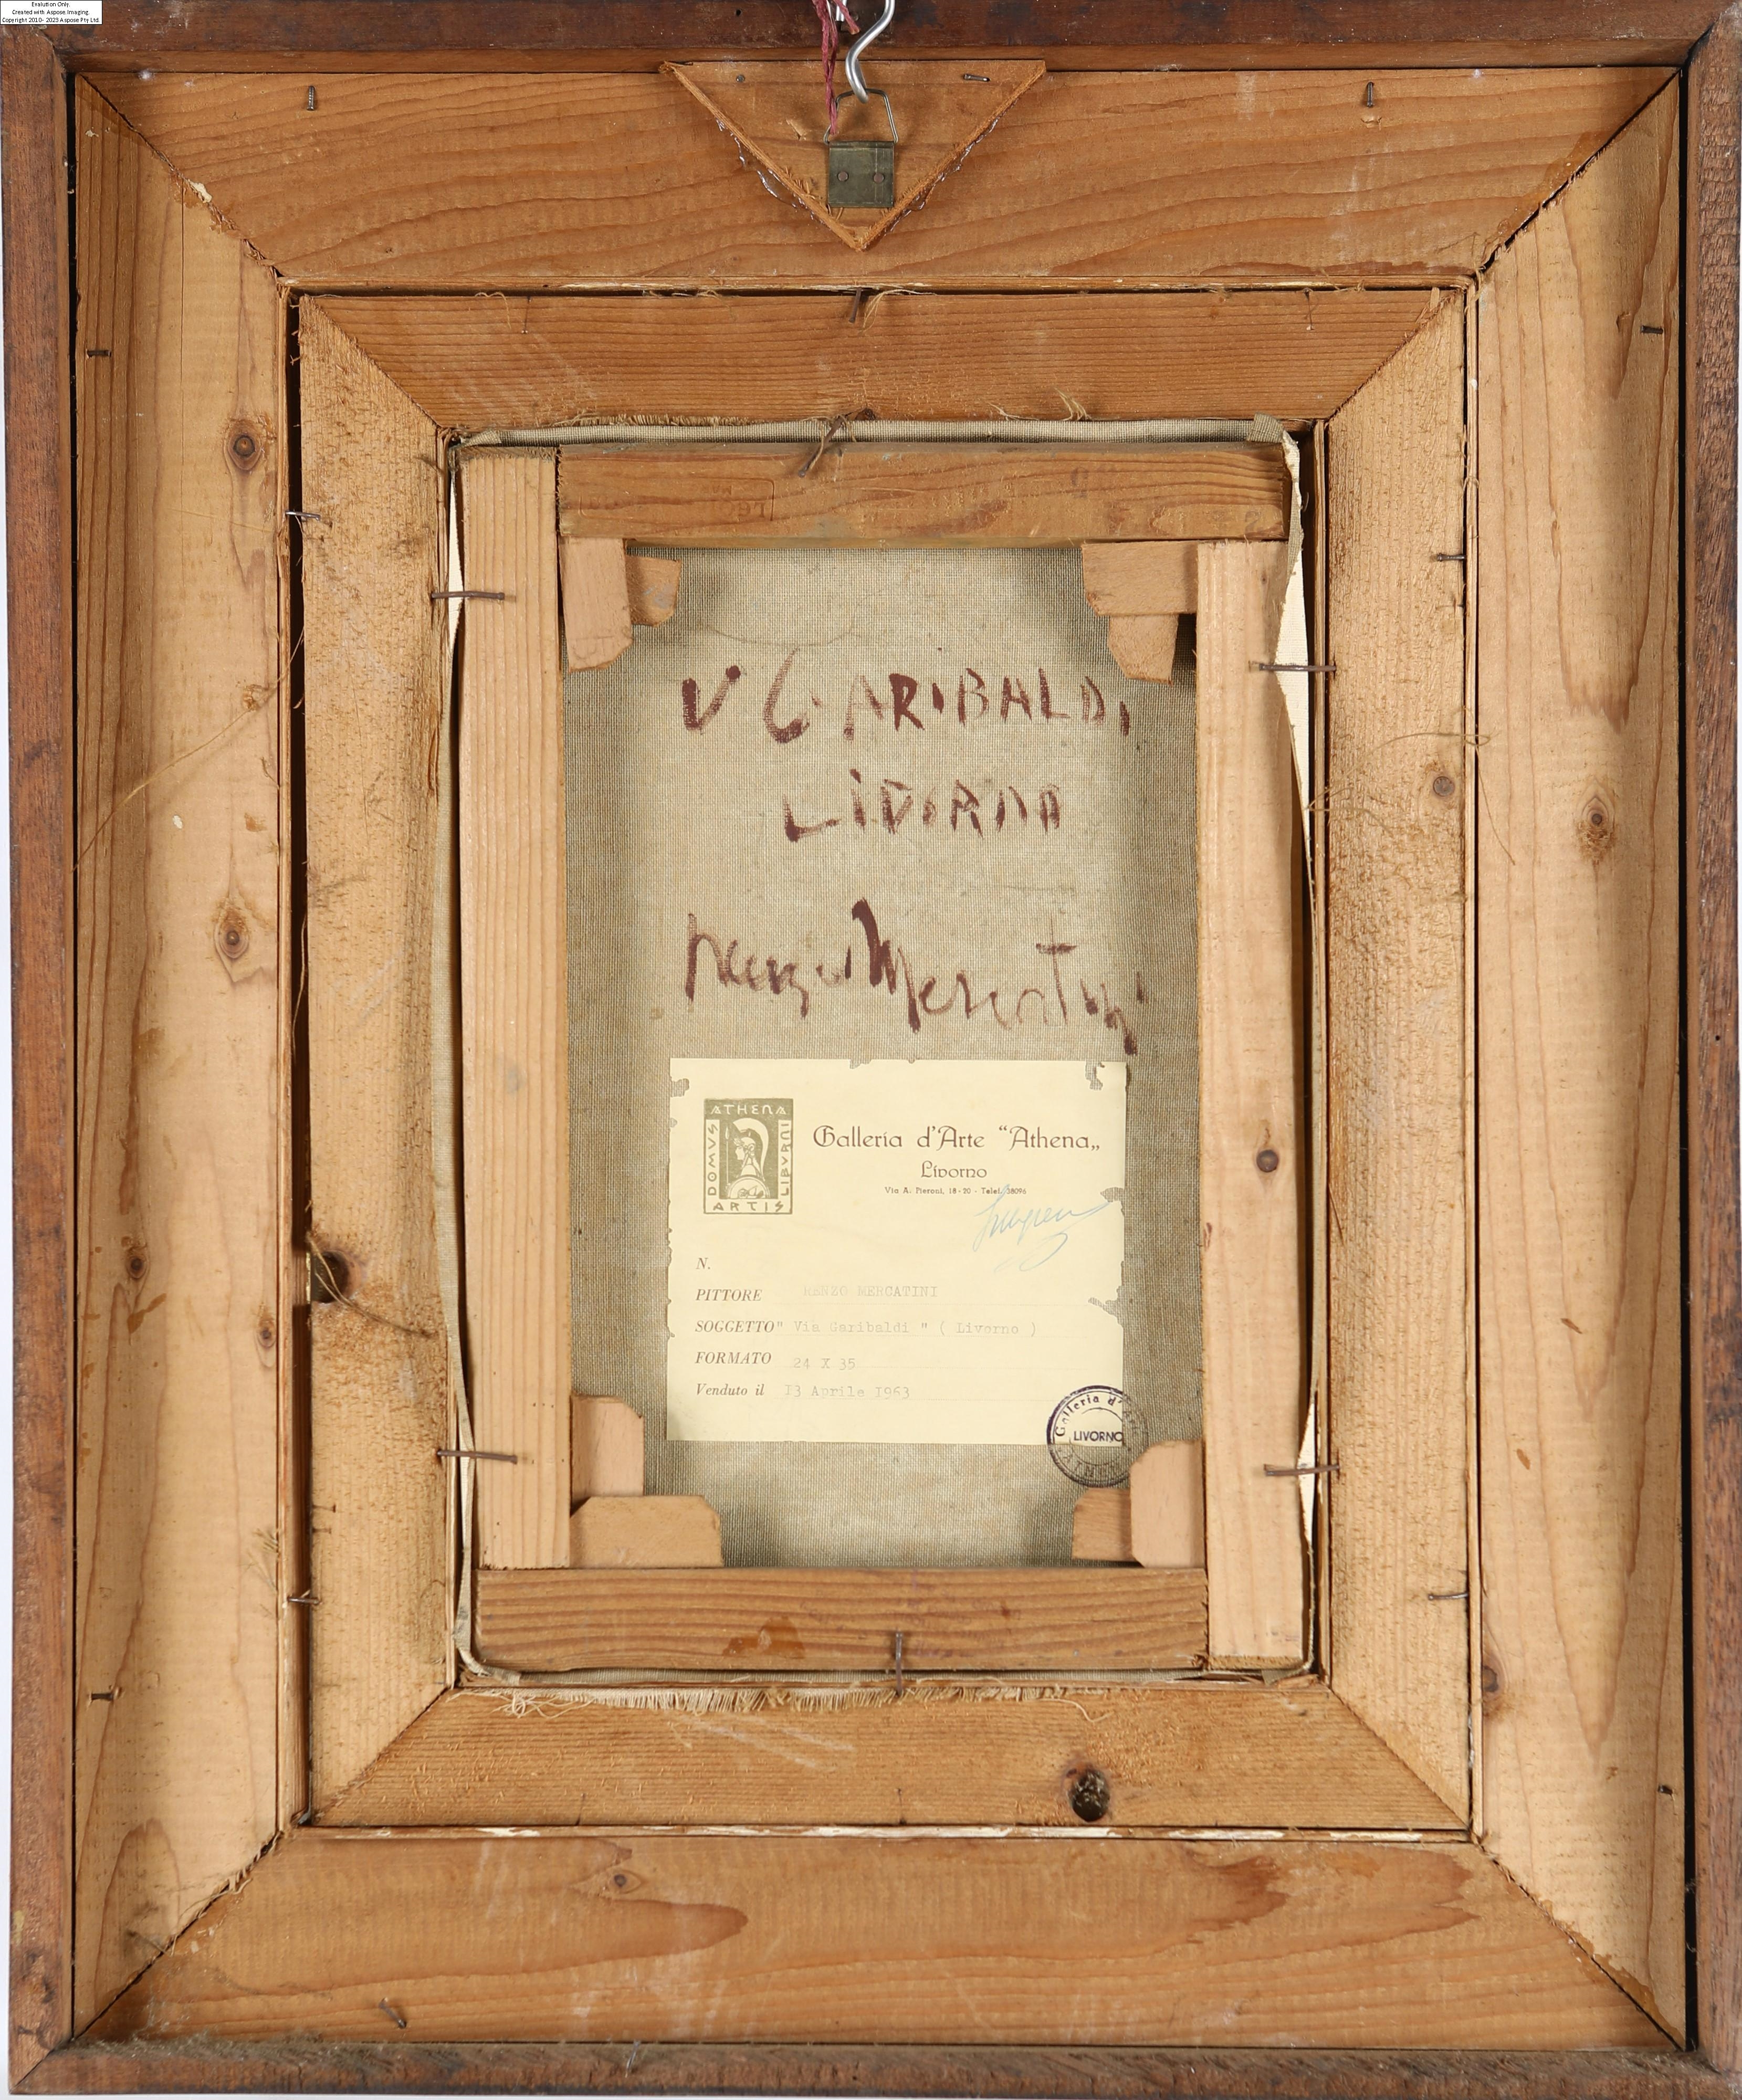 Evaluation Only.
Created with Aspose.Imaging.
Copyright 2010-2023 Aspose Pty Ltd.
V GARIBALDI
LIVORNO
Renzo Mercatini
ATHENA
DOMVS
LIBVRNI
ARTIS
Galleria d'Arte "Athena„
Livorno
Via A. Pieroni, 18-20 - Telef. 38096
N.
PITTORE RENZO MERCATINI
SOGGETTO " Via Garibaldi " ( Livorno )
FORMATO 24 X 35
Venduto il I3 Aprile I963
Galleria d'Arte
LIVORNO
ATHENA